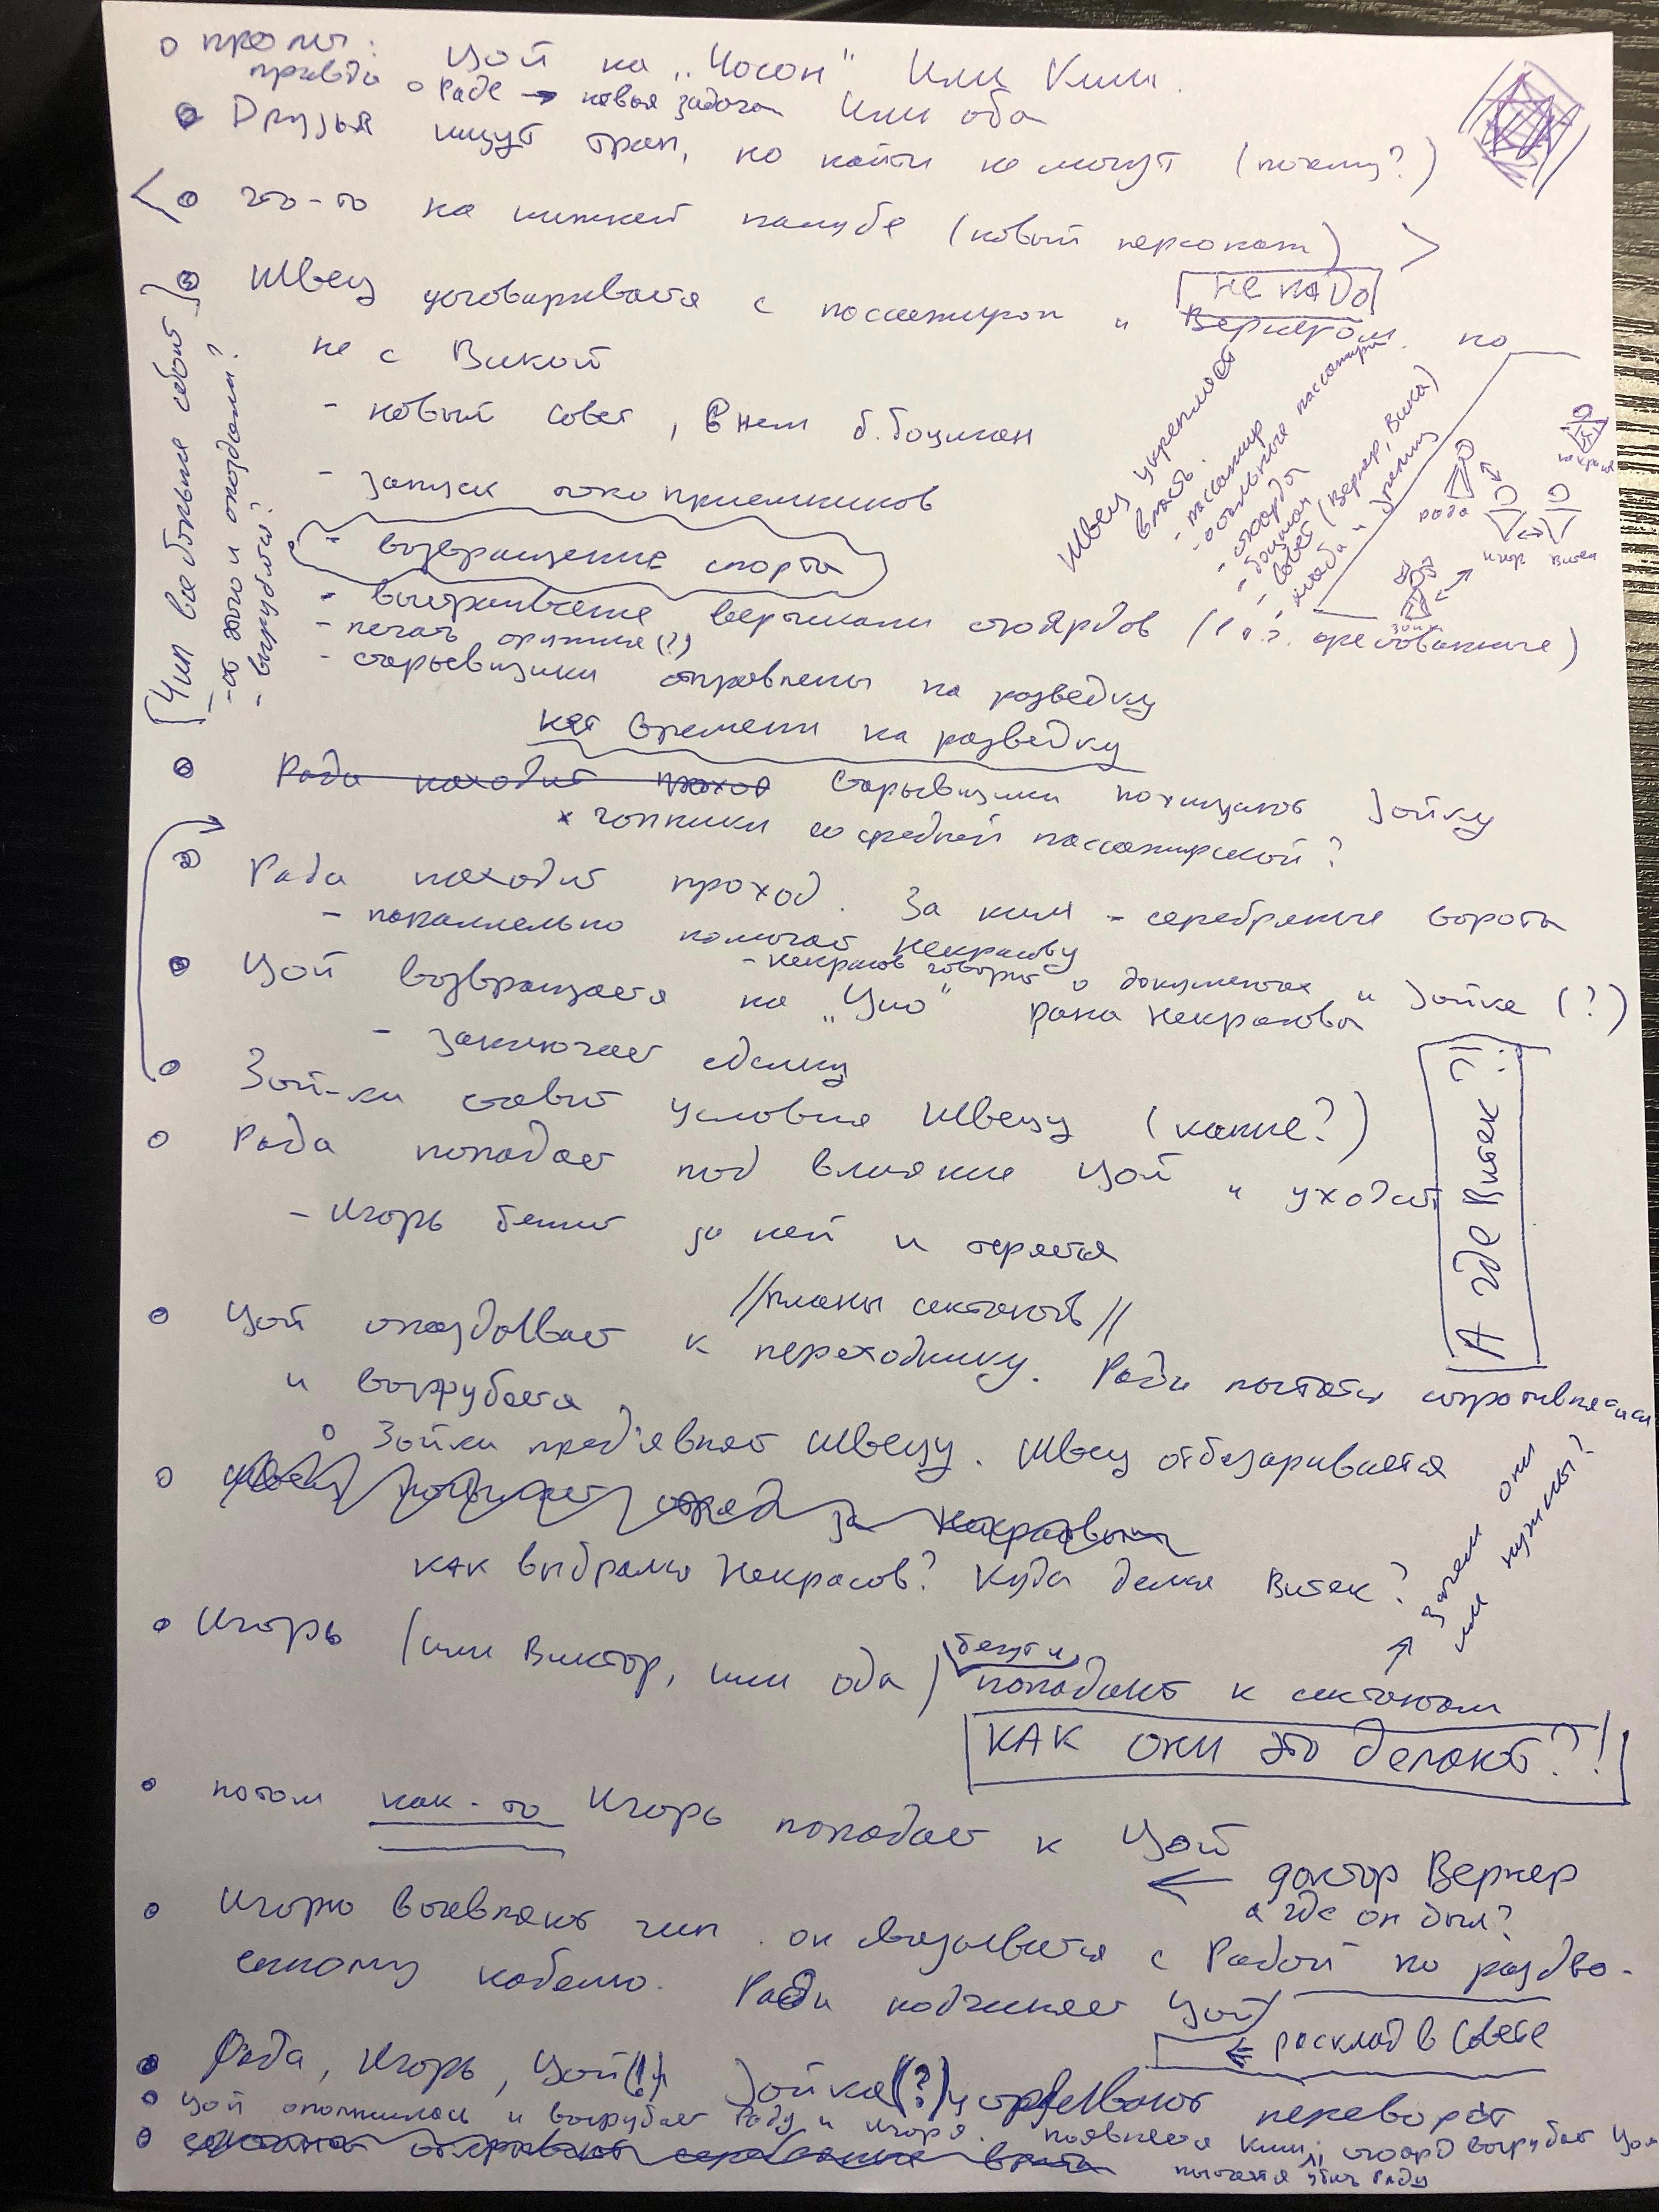 пролог: Цой на „Чосон" или Ким.
правда о Раде → новая задача или оба
Друзья ищут трап, но найти не могут (почему?)
< что-то на нижней палубе (новый персонаж) >
Швец уговаривается с пассажиром и Вернером, но
НЕ НАДО
не с Викой
- новый Совет, в нем б. боцман
- запуск токоприемников
- возвращение спорта
- выстраивание вертикали стюардов (в т.ч. арестованные)
- печать оружия (?)
- старьевщики отправлены на разведку
нет времени на разведку
Рада находит проход старьевщики похищают Зойку
× гопники со средней пассажирской?
Рада находит проход. За ним - серебряные ворота
- параллельно помогает Некрасову
- Некрасов говорит о документах и Зойке (?)
Цой возвращается на „Цио" рана Некрасова
- заключает сделку
Зой-ки ставит условия Швецу (какие?)
Рада попадает под влияние Цой и уходит
- Игорь бежит за ней и теряется
// планы сектантов //
Цой опаздывает к переходнику. Рада пытается сопротивляться
и вырубается
Зойки предъявляет Швецу. Швец отбазаривается
Швец посылает отряд за Некрасовым
как выбрался Некрасов? Куда делся Витек?
Игорь (или Виктор, или оба) бегут и попадают к сектантам
КАК ОНИ ЭТО ДЕЛАЮТ?!
зачем они им нужны?
потом как-то Игорь попадает к Цой
← доктор Вернер
а где он был?
Игорю вживляют чип. он связывается с Радой по раздво-
енному кабелю. Рада подчиняет Цой
← расклад в Совете
Рада, Игорь, Цой(!), Зойка(?) устраивают переворот
Цой опомнилась и вырубает Раду и Игоря. Появляется Ким, стюард вырубает Цой
пытается убить Раду
открывают серебряные врата
Чип все больше сбоит
- от этого и опоздали?
- вырубился?
Швец укрепляет
власть.
- пассажир
- остальные пассажиры
- стюарды
- боцман
- Совет (Вернер, Вика)
рада
игор
витек
некрасов
зойк
А где Витек?!